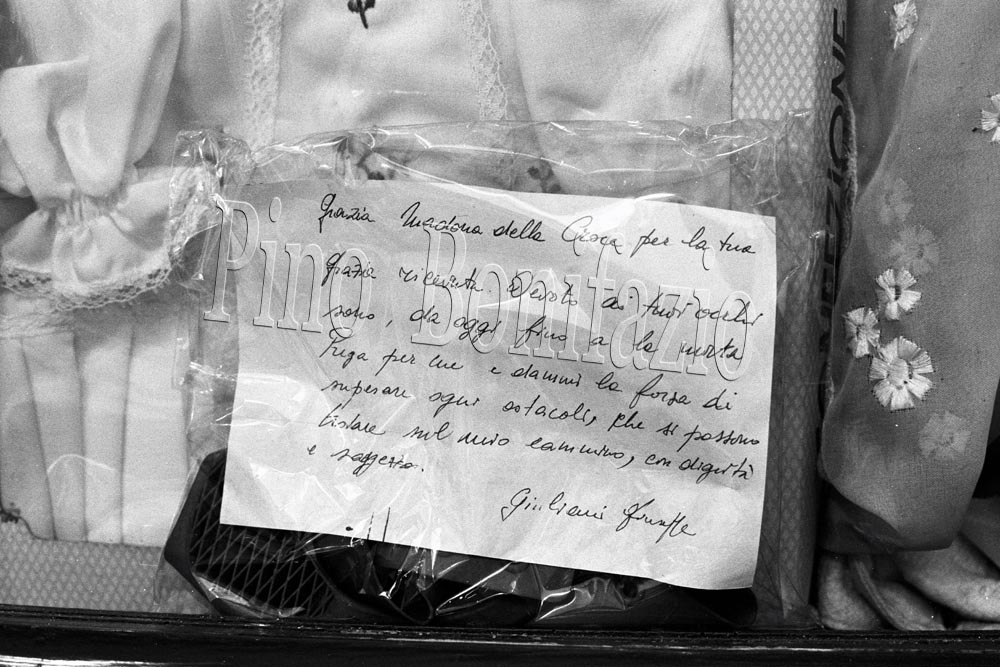 Grazia Madona della Croce per la tua
grazia ricevuta Devoto ai tuoi occhi
sono, da oggi fino a la morta
Prega per me e dammi la forza di
superare ogni ostacoli, che si possono
sul mio cammino, con dignità
e saggezza.
Giuliani
Pino Bonifazio
EZIONE